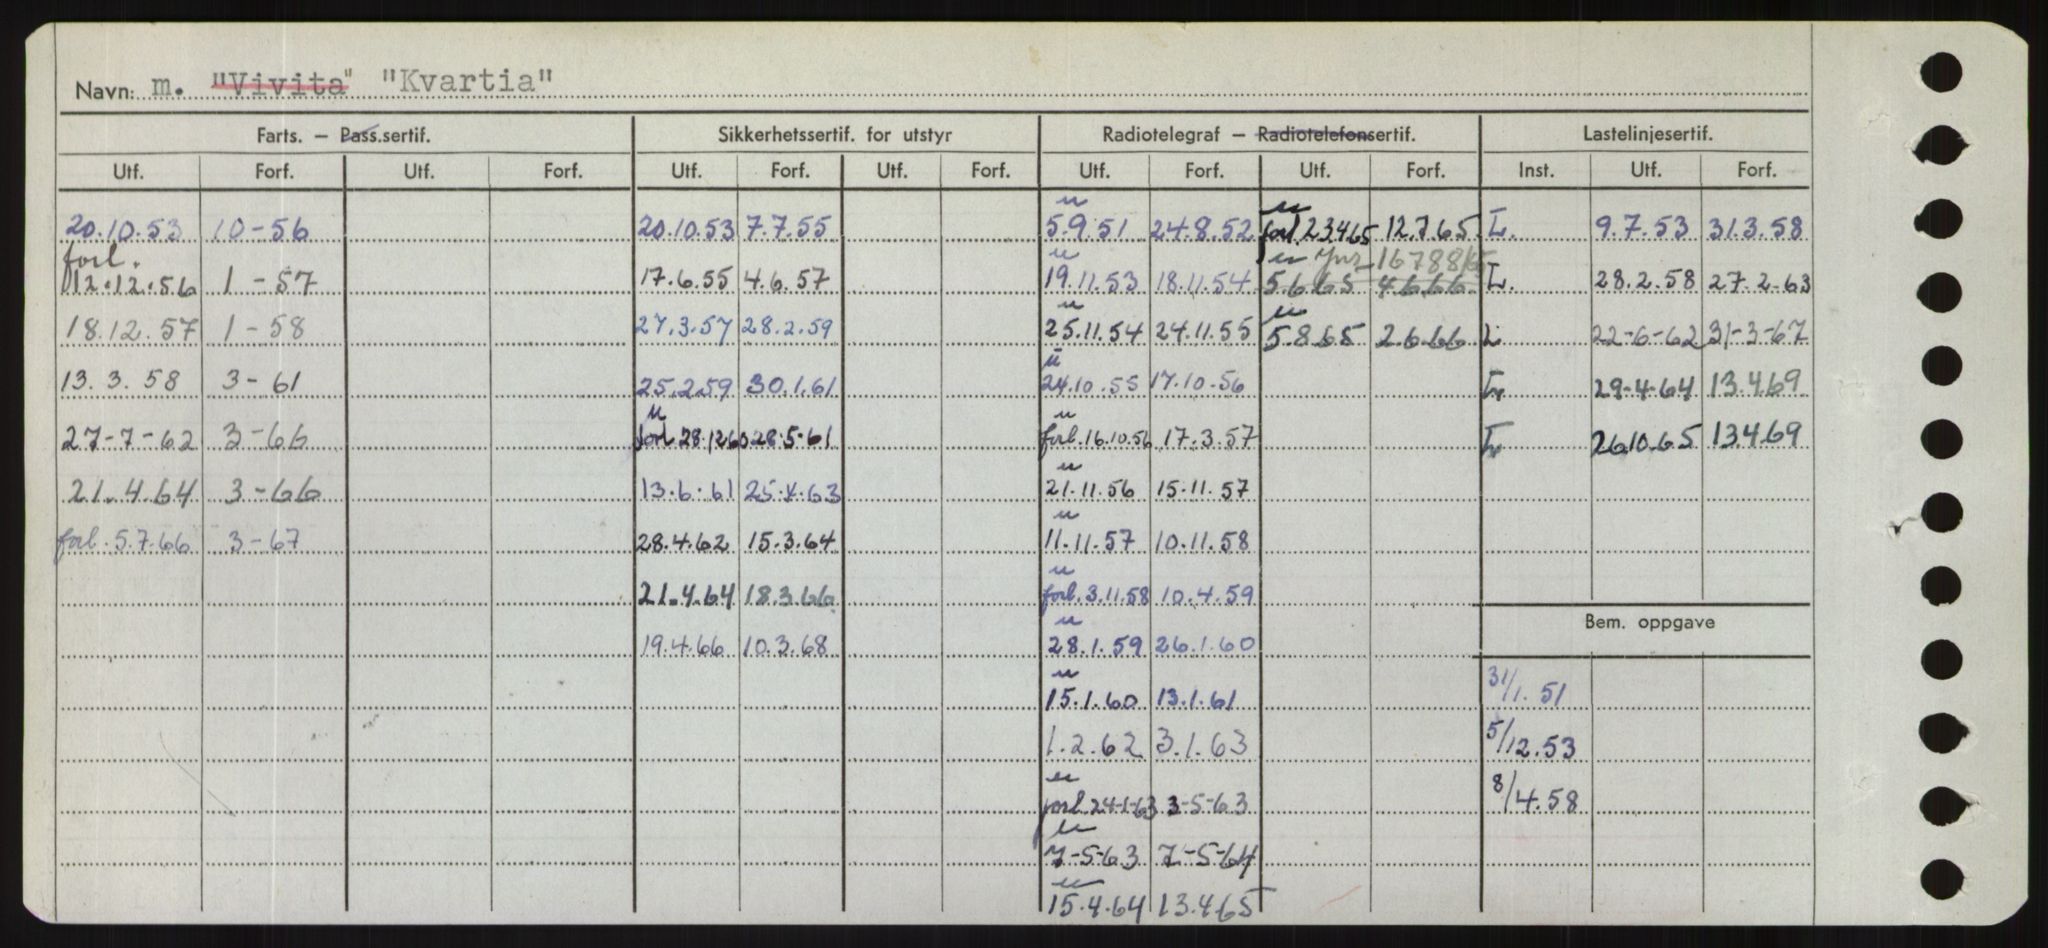 Navn: m. "Vivita" "Kvartia"
Farts. — Pass.sertif. Sikkerhetssertif. for utstyr Radiotelegraf — Radiotelefonsertif. Lastelinjesertif.
Utf. Forf. Utf. Forf. Utf. Forf. Utf. Forf. Utf. Forf. Utf. Forf. Inst. Utf. Forf.
u u
20.10.53 10-56 20.10.53 7.7.55 5.9.51 24.8.52 forl 23465 12.7.65. L. 9.7.53 313.58
forl. u u 16788/65
12.12.56 1-57 17.6.55 4.6.57 19.11.53 18.11.54 5665 4666 L. 28.2.58 27.2-63
u u
18.12.57 1-58 27.3.57 28.2.59 25.11.54 24.11.55 5.8.65 2.6.66 L 22-6-62 31-3-67
u
13.3.58 3-61 25.2.59 30.1.61 24.10.55 17.10.56 L 29-4-64 13.4.69
u u
27-7-62 3-66 forl 28.12.60 28.5-61 forl.16.10.56 17.3.57 L 26.10.65 13.4.69
u
21.4.64 3-66 13.6.61 25.4.63 21.11.56 15.11.57
u
forl.5.7.66 3-67 28.4.62 15.3.64 11.11.57 10.11.58
u
21.4.64 18.3.66 forl.3.11.58 10.4.59
Bem. oppgave
u
19.4.66 10.3.68 28.1.59 26.1.60
u
15.1.60 13.1.61 31/1.51
1.2.62 3.1.63 5/12.53
u
forl 24-1-63 3-5-63 8/4.58
u
7-5-63 7-5-64
u
15.4.64 13.4.65